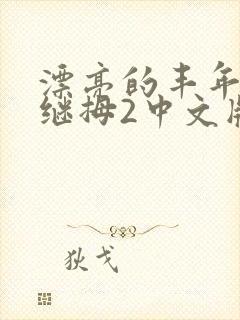 漂亮的丰年
继拇2中文版
狄戈